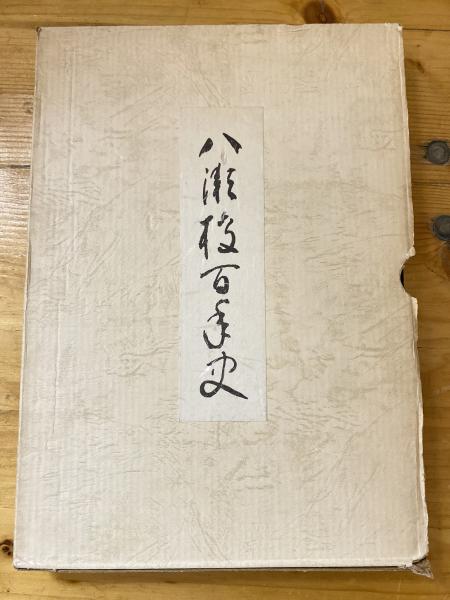 八瀬校百年史